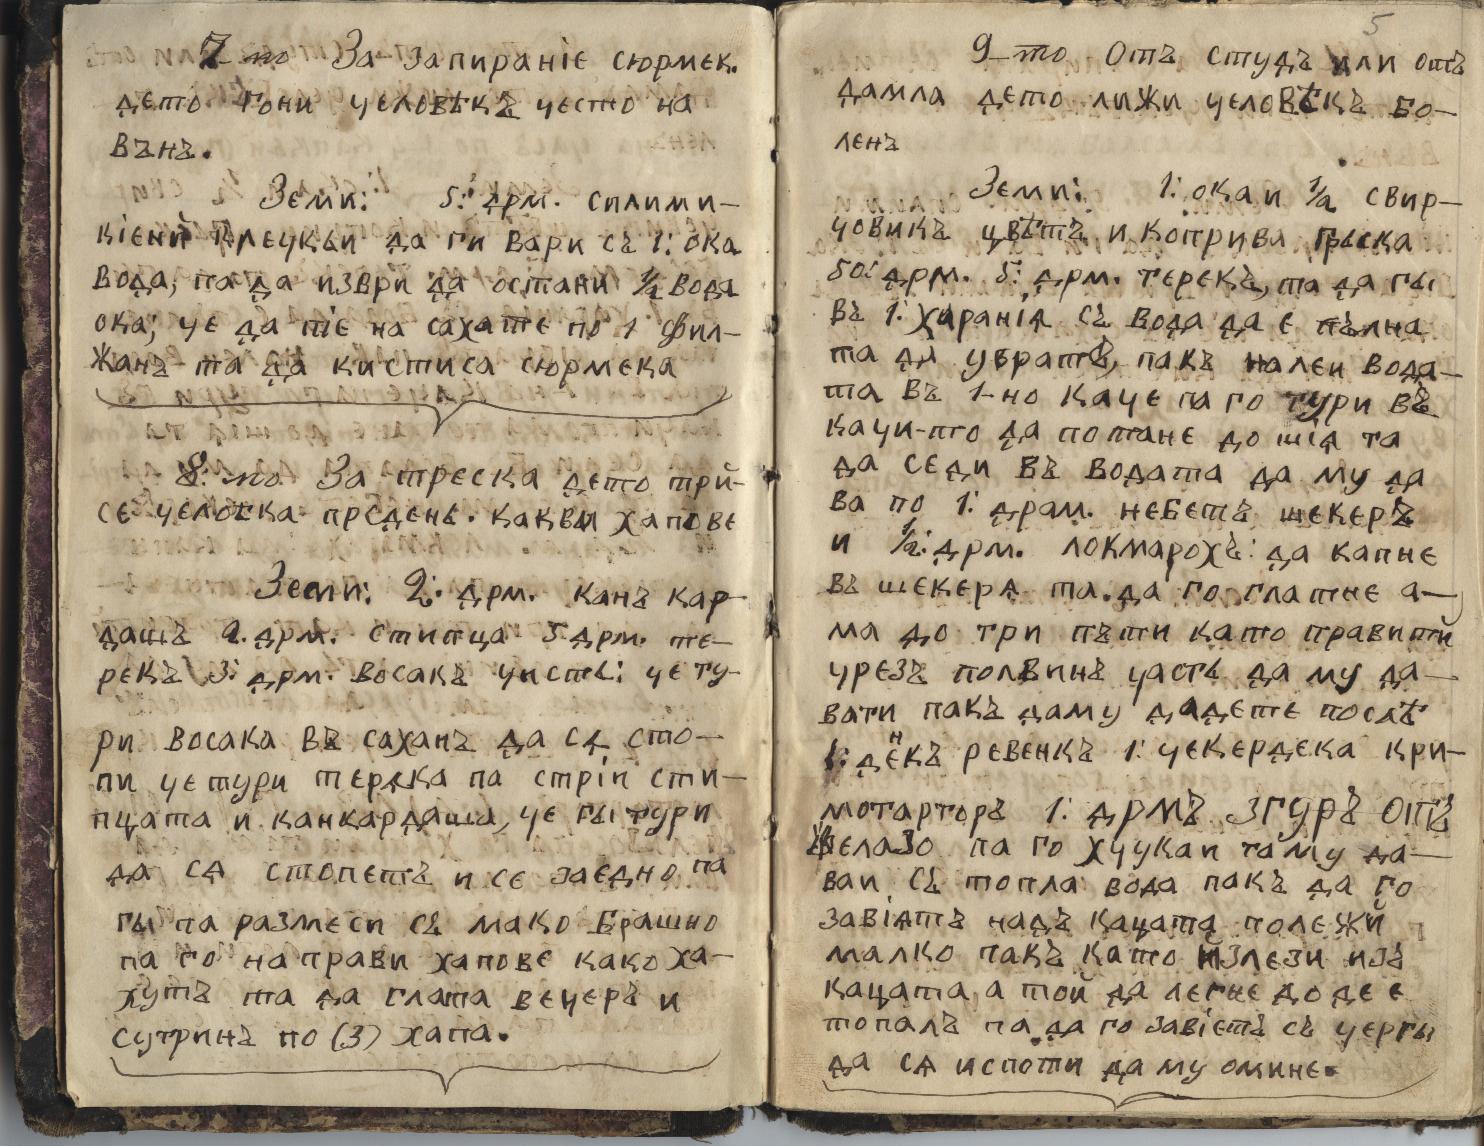 7-то За запираніе сюрмек.
дето гони человѣкъ често на
вънъ.
Земи: 5: дрм. силими-
кіени плеукьи да ги вари съ 1: ока
вода, па да изври да остани ½ вода
ока; че да піе на сахате по 1 фил-
жанъ та да кистиса сюрмека
8: то За треска дето трй-
се человѣка предень. каквы хапове
Земи: 2: дрм. канъ кар-
дашъ 2. дрм. стипца 5 дрм. те-
рекъ 3: дрм. восакъ чисть: че ту-
ри восака въ саханъ да сѧ сто-
пи че тури терѧка па стріи сти-
пцата и канкардаша, че гы тури
да сѧ стопетъ и се заедно па
гы па размеси съ мако брашно
па го направи хапове како ха-
хутъ та да глата вечеръ и
сутринъ по (3) хапа.
5
9-то Отъ студъ или отъ
дамла дето лижи человѣкъ бо-
ленъ
Земи: 1: ока и ½ свир-
човикъ цвѣтъ и коприва грыска
50: дрм. 5: дрм. терекъ, та да гы
въ 1: харанія съ вода да е пълна
та да увратъ, пакъ налеи вода-
та въ 1-но каче па го тури въ
качи-то да потане до шіѧ та
да седи въ водата да му да
ва по 1: драм. небетъ шекеръ
и ½: дрм. локмарохъ: да капне
въ шекерѧ та да го глатне а-
ма до три пъти като правити
чрезъ половинъ часть да му да-
вати пакъ даму дадете послѣ
1: денкъ ревенкъ 1: чекердека кри-
мотарторъ 1: дрмъ згуръ отъ
желазо па го хчукаи таму да-
ваи съ топла вода пакъ да го
завіятъ надъ кацата полежй
малко пакъ като излези изъ
кацата, а той да легне до де е
топалъ па да го завіетъ съ чергы
да сѧ испоти да му омине.